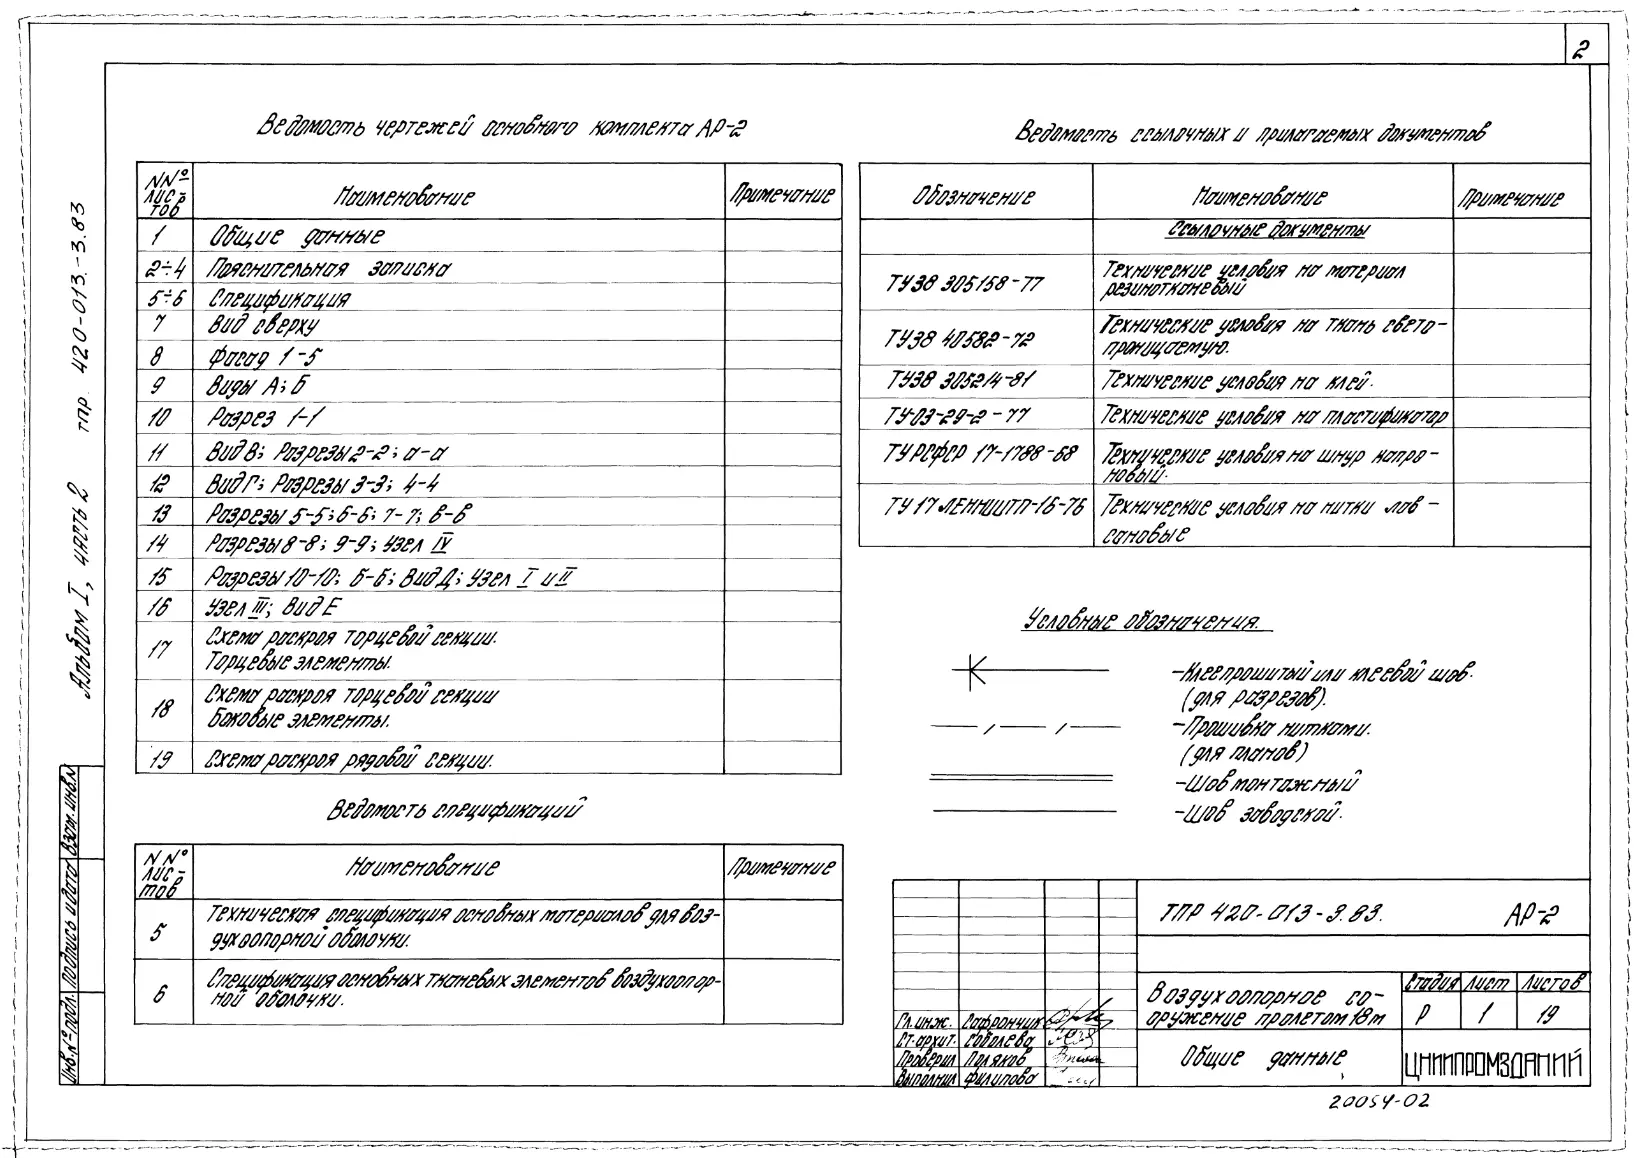 2
Ведомость чертежей основного комплекта АР-2
NNº лис-тов Наименование Примечание
1 Общие данные
2÷4 Пояснительная записка
5÷6 Спецификация
7 Вид сверху
8 Фасад 1-5
9 Виды А; Б
10 Разрез 1-1
11 Вид В; Разрезы 2-2; а-а
12 Вид Г; Разрезы 3-3; 4-4
13 Разрезы 5-5; 6-6; 7-7; в-в
14 Разрезы 8-8; 9-9; Узел IV
15 Разрезы 10-10; б-б; Вид Д; Узел I и II
16 Узел III; Вид Е
17 Схема раскроя торцевой секции.
Торцевые элементы.
18 Схема раскроя торцевой секции
Боковые элементы.
19 Схема раскроя рядовой секции.
Ведомость спецификаций
NNº лис-тов Наименование Примечание
5 Техническая спецификация основных материалов для воз-
духоопорной оболочки.
6 Спецификация основных тканевых элементов воздухоопор-
ной оболочки.
Ведомость ссылочных и прилагаемых документов
Обозначение Наименование Примечание
Ссылочные документы
ТУ38 305158-77 Технические условия на материал
резинотканевый
ТУ38 40582-72 Технические условия на ткань свето-
проницаемую.
ТУ38 305214-81 Технические условия на клей.
ТУ-03-29-2-77 Технические условия на пластификатор
ТУ РСФСР 17-1788-68 Технические условия на шнур капро-
новый.
ТУ 17 ЛЕННИИТП-16-76 Технические условия на нитки лав-
сановые
Условные обозначения.
-Клеепрошитый или клеевой шов.
(для разрезов).
-Прошивка нитками.
(для планов)
-Шов монтажный
-Шов заводской.
ТПР 420-013-3.83. АР-2
Воздухоопорное со-
оружение пролетом 18м
Стадия Лист Листов
Р 1 19
Гл. инж. Сафрончик
Ст. архит. Соболева
Проверил Поляков
Выполнил Филипова
Общие данные
ЦНИИПРОМЗДАНИЙ
20054-02
Альбом I, часть 2 тпр. 420-013.-3.83
Инв.Nº подл. Подпись и дата Взам. инв.N